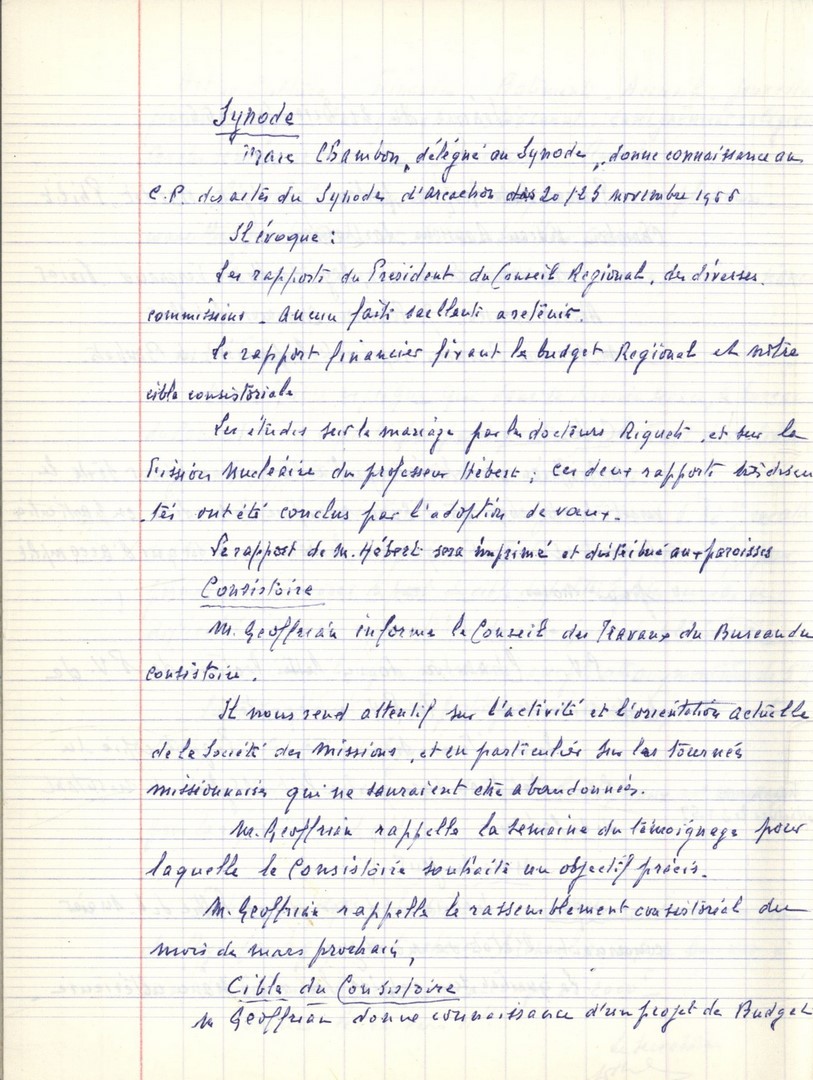 Synode
Marc Chambon, délégué au Synode, donne connaissance au
C.P. des actes du Synode d'arcachon des 20/25 novembre 1966
Il évoque :
Les rapports du Président du Conseil Regional, des diverses
commissions - aucun faits saillants a retenir.
Le rapport financier fixant le budget Regional et notre
cible consistoriale
Les études sur le mariage par les docteurs Riquet, et sur la
Fission Nucléaire du professeur Hébert ; ces deux rapports très discu
tés ont été conclus par l'adoption de vœux.
Le rapport de M. Hébert sera imprimé et distribué aux paroisses
Consistoire
M. Geoffrian informe le Conseil des Travaux du Bureau du
consistoire.
Il nous rend attentif sur l'activité et l'orientation actuelle
de la Société des Missions, et en particulier sur les tournés
missionnaires qui ne sauraient être abandonnées.
M. Geoffrian rappelle la semaine du témoignage pour
laquelle le Consistoire souhaite un objectif précis.
M. Geoffrian rappelle le rassemblement consistorial du
mois de mars prochain,
Cible du Consistoire
M Geoffrian donne connaissance d'un projet de Budget